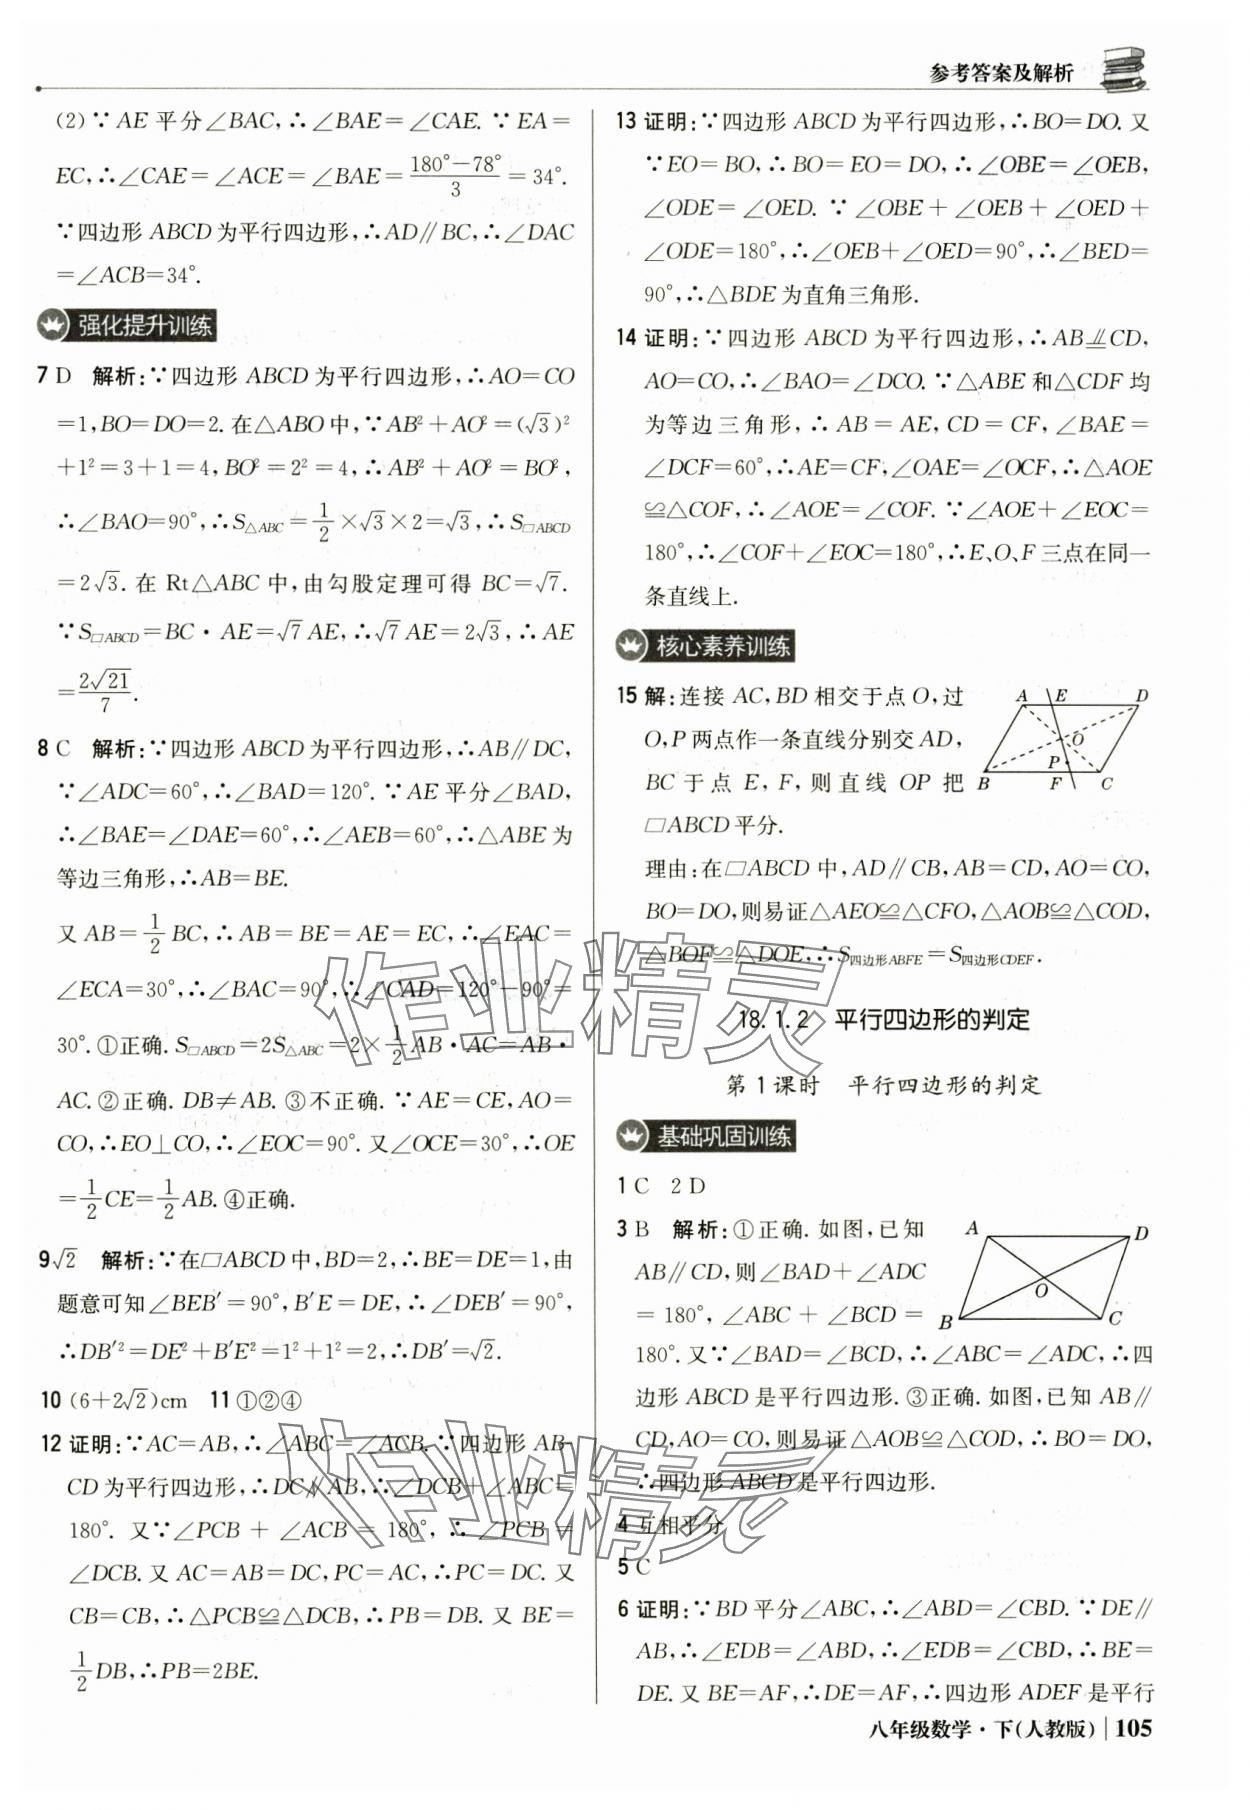 参考答案及解析
(2)∵AE平分∠BAC,∴∠BAE=∠CAE.∵EA=
EC,∴∠CAE=∠ACE=∠BAE=(180°-78°)/3=34°.
∵四边形ABCD为平行四边形,∴AD∥BC,∴∠DAC
=∠ACB=34°.
强化提升训练
7 D 解析:∵四边形ABCD为平行四边形,∴AO=CO
=1,BO=DO=2.在△ABO中,∵AB²+AO²=(√3)²
+1²=3+1=4,BO²=2²=4,∴AB²+AO²=BO²,
∴∠BAO=90°,∴S△ABC=1/2×√3×2=√3,∴S□ABCD
=2√3.在Rt△ABC中,由勾股定理可得BC=√7.
∵S□ABCD=BC·AE=√7AE,∴√7AE=2√3,∴AE
=2√21/7.
8 C 解析:∵四边形ABCD为平行四边形,∴AB∥DC,
∵∠ADC=60°,∴∠BAD=120°.∵AE平分∠BAD,
∴∠BAE=∠DAE=60°,∴∠AEB=60°,∴△ABE为
等边三角形,∴AB=BE.
又AB=1/2BC,∴AB=BE=AE=EC,∴∠EAC=
∠ECA=30°,∴∠BAC=90°,∴∠CAD=120°-90°=
30°.①正确.S□ABCD=2S△ABC=2×1/2AB·AC=AB·
AC.②正确.DB≠AB.③不正确.∵AE=CE,AO=
CO,∴EO⊥CO,∴∠EOC=90°.又∠OCE=30°,∴OE
=1/2CE=1/2AB.④正确.
9 √2 解析:∵在□ABCD中,BD=2,∴BE=DE=1,由
题意可知∠BEB′=90°,B′E=DE,∴∠DEB′=90°,
∴DB′²=DE²+B′E²=1²+1²=2,∴DB′=√2.
10 (6+2√2)cm 11 ①②④
12 证明:∵AC=AB,∴∠ABC=∠ACB.∵四边形AB-
CD为平行四边形,∴DC∥AB,∴∠DCB+∠ABC=
180°.又∵∠PCB+∠ACB=180°,∴∠PCB=
∠DCB.又AC=AB=DC,PC=AC,∴PC=DC.又
CB=CB,∴△PCB≌△DCB,∴PB=DB.又BE=
1/2DB,∴PB=2BE.
13 证明:∵四边形ABCD为平行四边形,∴BO=DO.又
∵EO=BO,∴BO=EO=DO,∴∠OBE=∠OEB,
∠ODE=∠OED.∵∠OBE+∠OEB+∠OED+
∠ODE=180°,∴∠OEB+∠OED=90°,∴∠BED=
90°,∴△BDE为直角三角形.
14 证明:∵四边形ABCD为平行四边形,∴AB∥=CD,
AO=CO,∴∠BAO=∠DCO.∵△ABE和△CDF均
为等边三角形,∴AB=AE,CD=CF,∠BAE=
∠DCF=60°,∴AE=CF,∠OAE=∠OCF,∴△AOE
≌△COF,∴∠AOE=∠COF.∵∠AOE+∠EOC=
180°,∴∠COF+∠EOC=180°,∴E、O、F三点在同一
条直线上.
核心素养训练
15 解:连接AC,BD相交于点O,过
O,P两点作一条直线分别交AD,
BC于点E,F,则直线OP把
□ABCD平分.
A E D
O
P
B F C
理由:在□ABCD中,AD∥CB,AB=CD,AO=CO,
BO=DO,则易证△AEO≌△CFO,△AOB≌△COD,
△BOF≌△DOE,∴S四边形ABFE=S四边形CDEF.
18.1.2 平行四边形的判定
第1课时 平行四边形的判定
基础巩固训练
1 C 2 D
3 B 解析:①正确.如图,已知
AB∥CD,则∠BAD+∠ADC
=180°,∠ABC+∠BCD=
A D
O
B C
180°.又∵∠BAD=∠BCD,∴∠ABC=∠ADC,∴四
边形ABCD是平行四边形.③正确.如图,已知AB∥
CD,AO=CO,则易证△AOB≌△COD,∴BO=DO,
∴四边形ABCD是平行四边形.
4 互相平分
5 C
6 证明:∵BD平分∠ABC,∴∠ABD=∠CBD.∵DE∥
AB,∴∠EDB=∠ABD,∴∠EDB=∠CBD,∴BE=
DE.又BE=AF,∴DE=AF,∴四边形ADEF是平行
八年级数学·下(人教版) 105
作业精灵
作业精灵